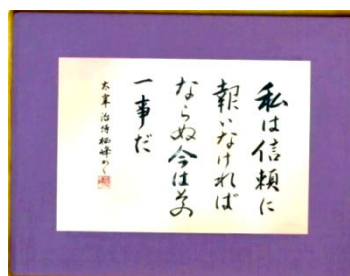 私は信頼に
報いなければ
ならぬ今はその
一事だ
太宰治